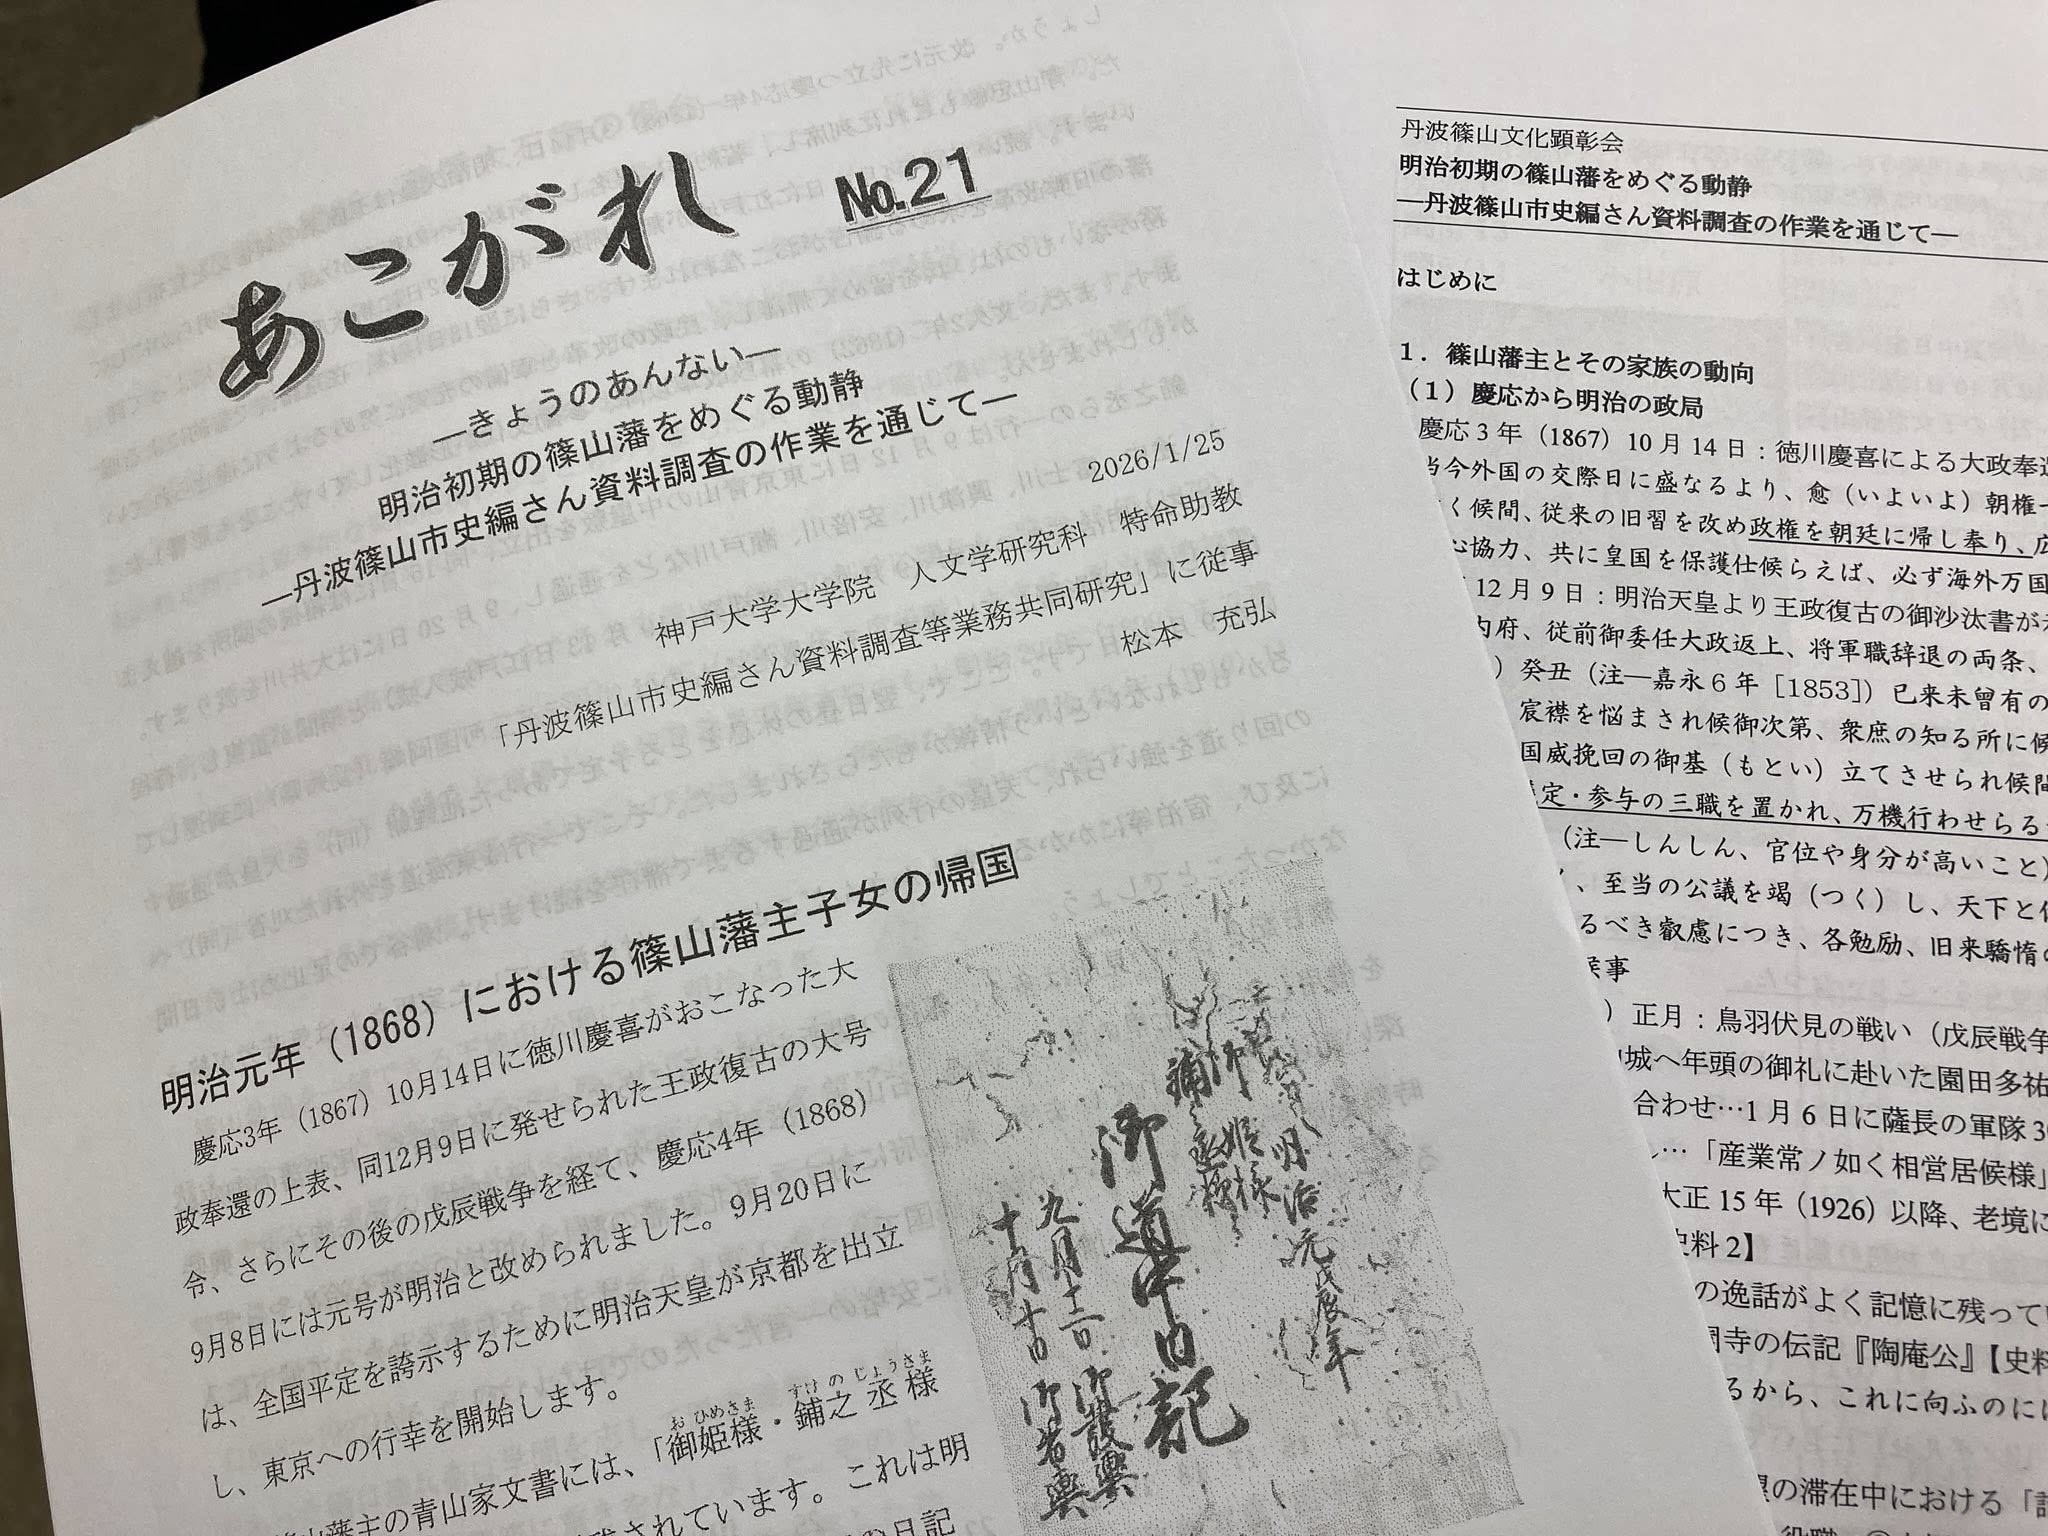 あこがれ No.21
―きょうのあんない―
明治初期の篠山藩をめぐる動静
―丹波篠山市史編さん資料調査の作業を通じて―
2026/1/25
神戸大学大学院　人文学研究科　特命助教
「丹波篠山市史編さん資料調査等業務共同研究」に従事
松本　充弘
明治元年（1868）における篠山藩主子女の帰国
慶応3年（1867）10月14日に徳川慶喜がおこなった大
政奉還の上表、同12月9日に発せられた王政復古の大号
令、さらにその後の戊辰戦争を経て、慶応4年（1868）
9月8日には元号が明治と改められました。9月20日に
は、全国平定を誇示するために明治天皇が京都を出立
し、東京への行幸を開始します。
山藩主の青山家文書には、「御姫様・鋪之丞様
おひめさま すけのじょうさま
されています。これは明
の日記
明治元戊辰年
御姫様
御道中日記
九月十二日
十月十日
丹波篠山文化顕彰会
明治初期の篠山藩をめぐる動静
―丹波篠山市史編さん資料調査の作業を通じて―
はじめに
1．篠山藩主とその家族の動向
（1）慶応から明治の政局
慶応3年（1867）10月14日：徳川慶喜による大政奉還
当今外国の交際日に盛なるより、愈（いよいよ）朝権
く候間、従来の旧習を改め政権を朝廷に帰し奉り、広
心協力、共に皇国を保護仕候らえば、必ず海外万国
12月9日：明治天皇より王政復古の御沙汰書が
内府、従前御委任大政返上、将軍職辞退の両条、
）癸丑（注―嘉永6年［1853］）已来未曾有の
宸襟を悩まされ候御次第、衆庶の知る所に候
国威挽回の御基（もとい）立てさせられ候間
定・参与の三職を置かれ、万機行わせらる
（注―しんしん、官位や身分が高いこと）
、至当の公議を竭（つく）し、天下と
るべき叡慮につき、各勉励、旧来驕惰の
候事
）正月：鳥羽伏見の戦い（戊辰戦争
城へ年頭の御礼に赴いた園田多祐
合わせ…1月6日に薩長の軍隊30
…「産業常ノ如く相営居候様」
大正15年（1926）以降、老境に
史料2】
の逸話がよく記憶に残ってい
園寺の伝記『陶庵公』【史料
るから、これに向ふのには
の滞在中における「